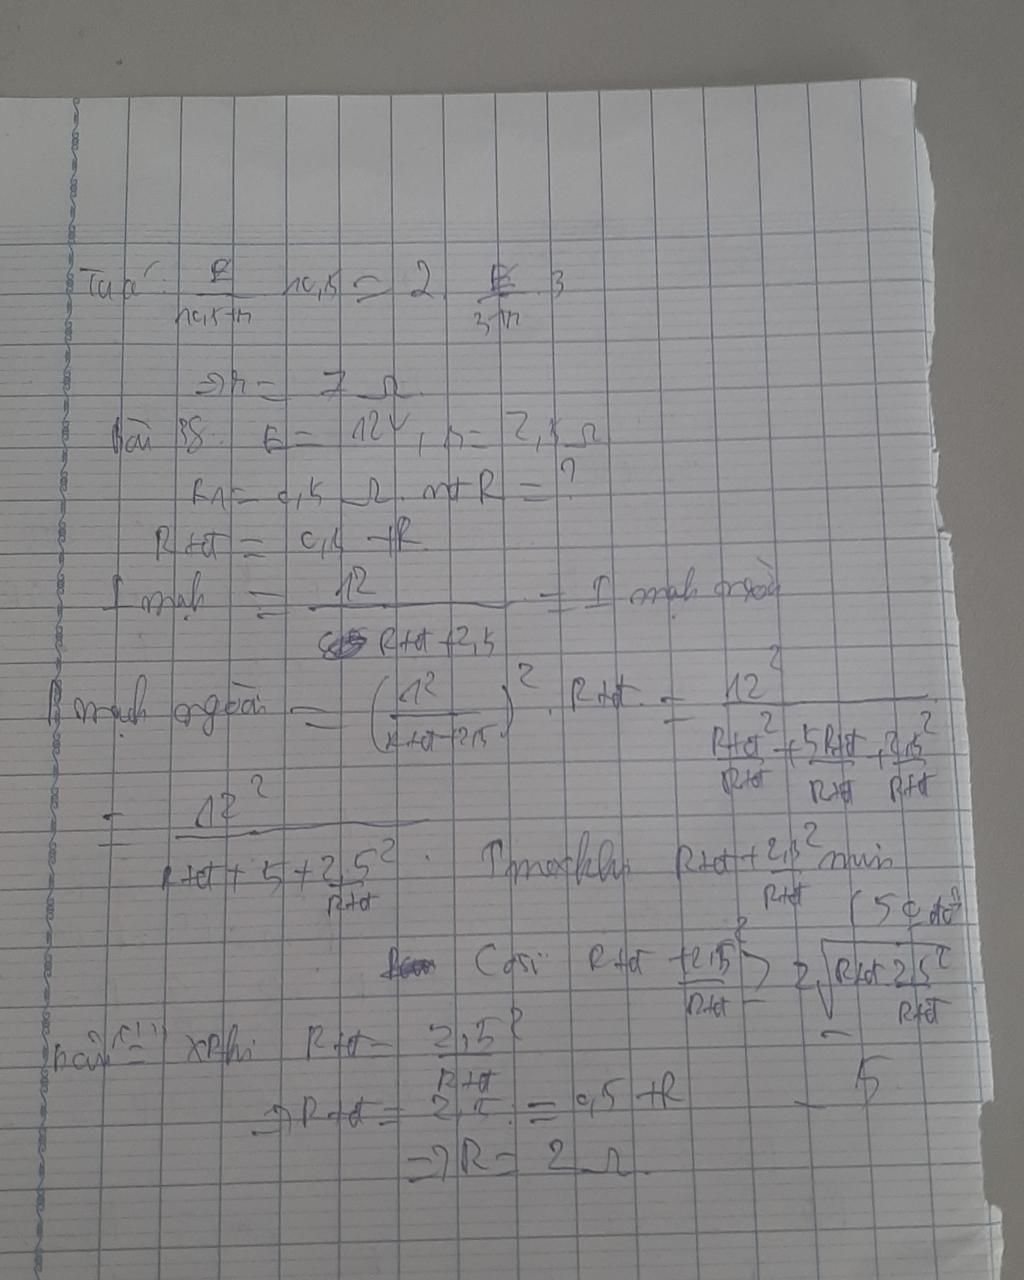 Ta có: E/(10,5+r) 10,5 = 2 E/(3+r) 3
=> r = 7 Ω
Bài 38. E = 12V, r = 2,5 Ω
R1 = 0,5 Ω nt R = ?
Rtđ = 0,5 + R
I mạch = 12/(Rtđ + 2,5) = I mạch ngoài
P mạch ngoài = (12/(Rtđ+2,5))² . Rtđ = 12²/(Rtđ²/Rtđ + 5Rtđ/Rtđ + 2,5²/Rtđ)
= 12²/(Rtđ + 5 + 2,5²/Rtđ) . Pmax khi Rtđ + 2,5²/Rtđ min
(5 c đổi
Cosi Rtđ + 2,5²/Rtđ ≥ 2√(Rtđ 2,5²/Rtđ)
= 5
Dấu "=" xr khi Rtđ = 2,5²/Rtđ
=> Rtđ = 2,5 = 0,5 + R
=> R = 2 Ω